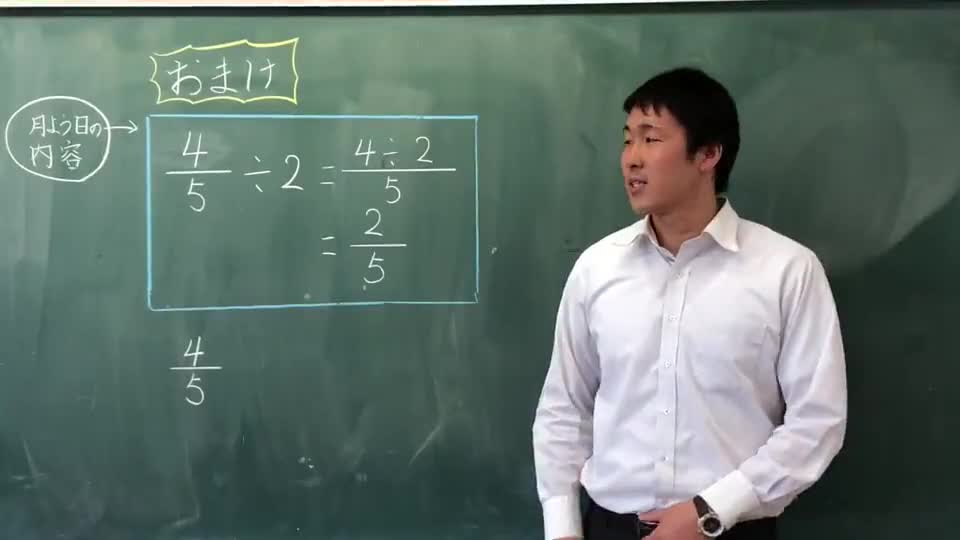 おまけ
月よう日の
内容
4/5 ÷ 2 = 4÷2/5
= 2/5
4/5